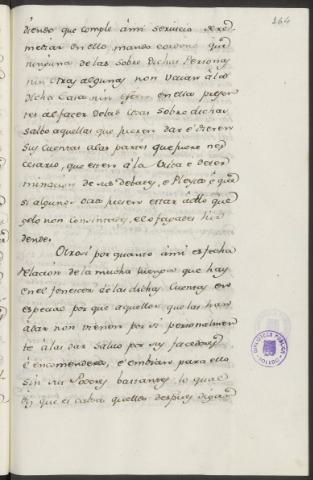 164
diendo que cumple âmi servicio è re
mediar en ello, mando è ordeno que
ninguna de las sobre dichas Personas
nin otras algunas non vaian â la
dicha Casa nin esten en ella presen
tes al facer de las cosas sobre dichas
salbo aquellas que fueren dar è dieren
sus Cuentas â las partes que fuere ne
cesario, que esten â la Vista è deter
minacion de sus debates, è Pleytos è que
si algunos otra fueren estar âello que
gelo non consintades, è lo fagades
dende.
Otrosi por quanto âmi es fecha
relacion de la mucha luenga que hay
en el fenecer de las dichas Cuentas en
especial por que aquellos que las han
â dar non vienen por si personalmen
te â las dar salvo por sus facedores
è encomenderos, è embian para ello
sin sus Poderes bastantes lo qual
es que es causa que ellos despues digan
BIBLIOTECA PUBLICA
TOLEDO